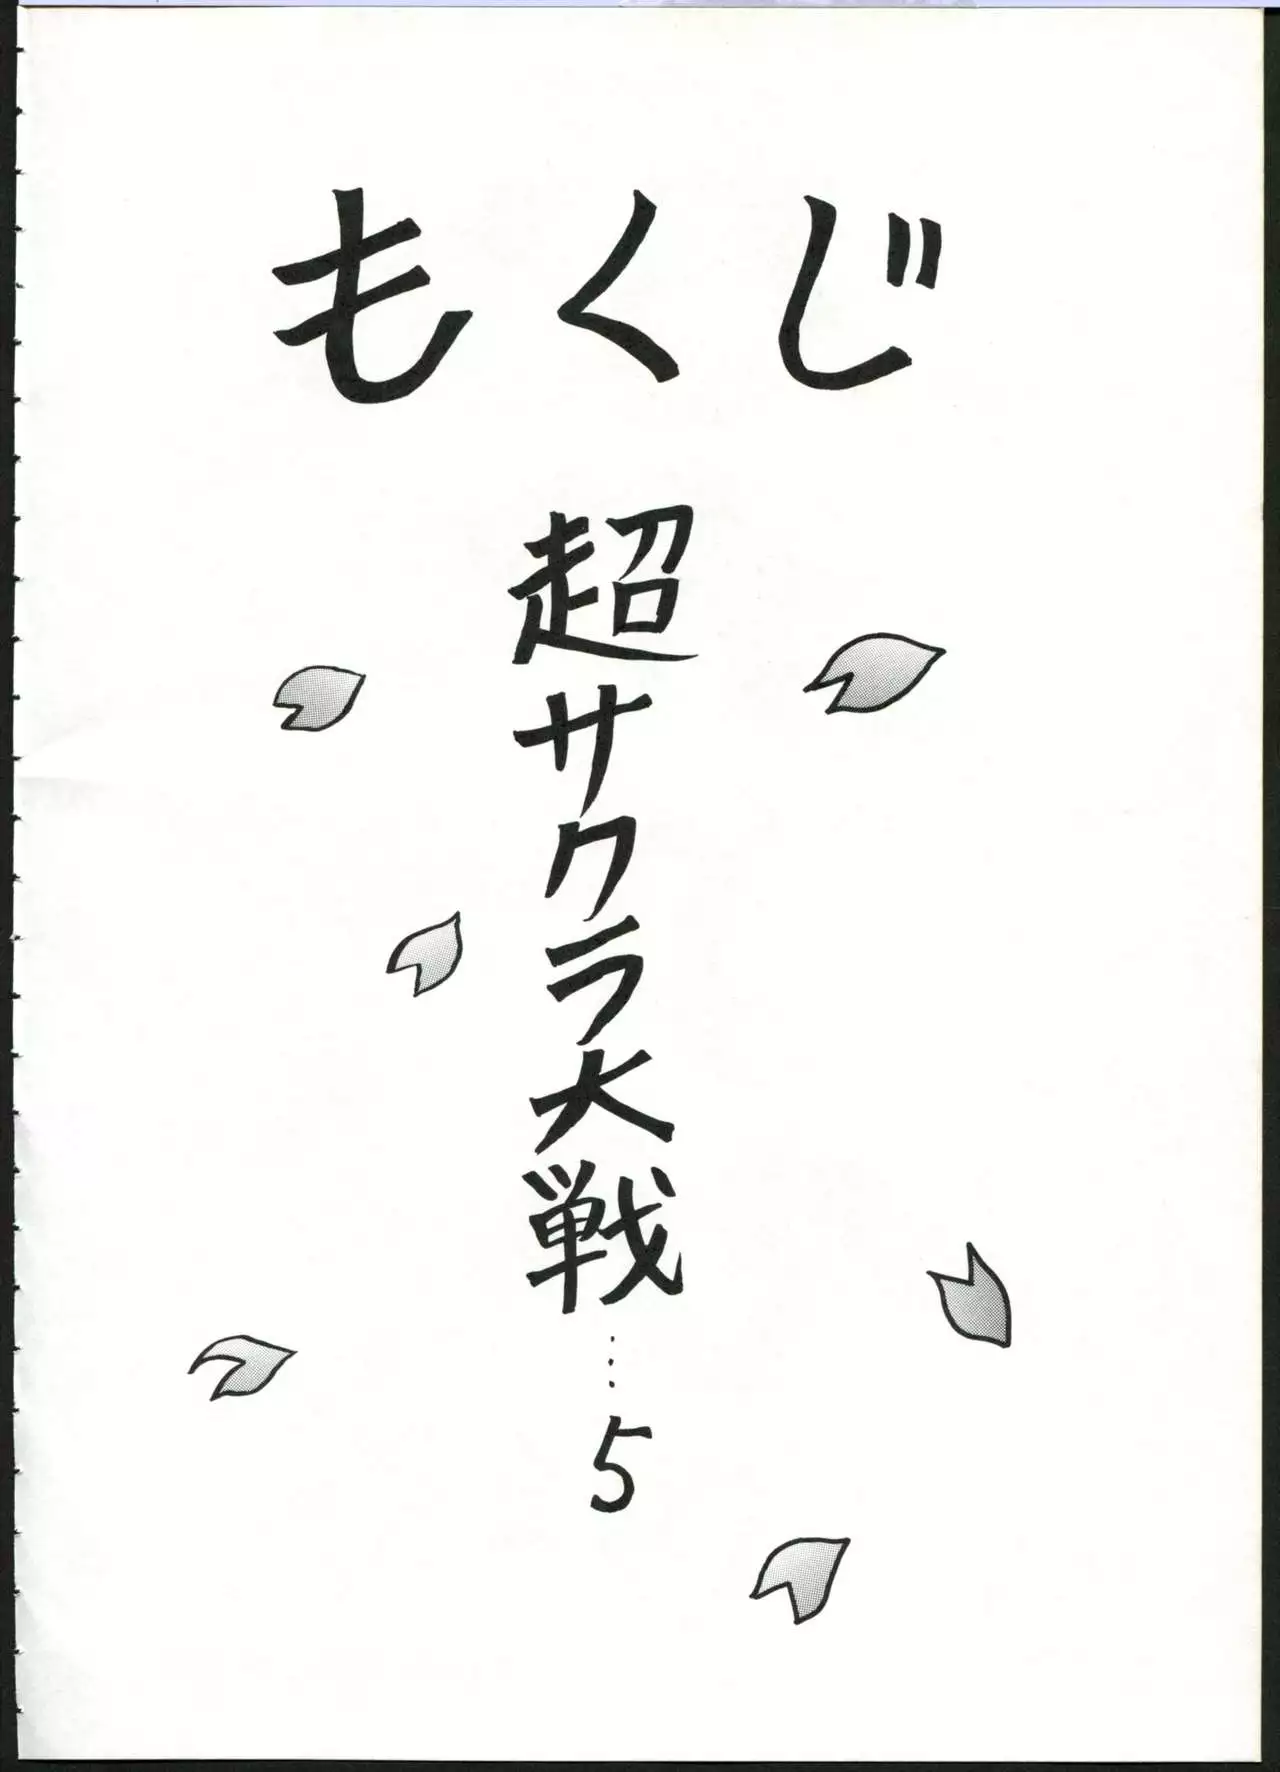 もくじ
超サクラ大戦……5